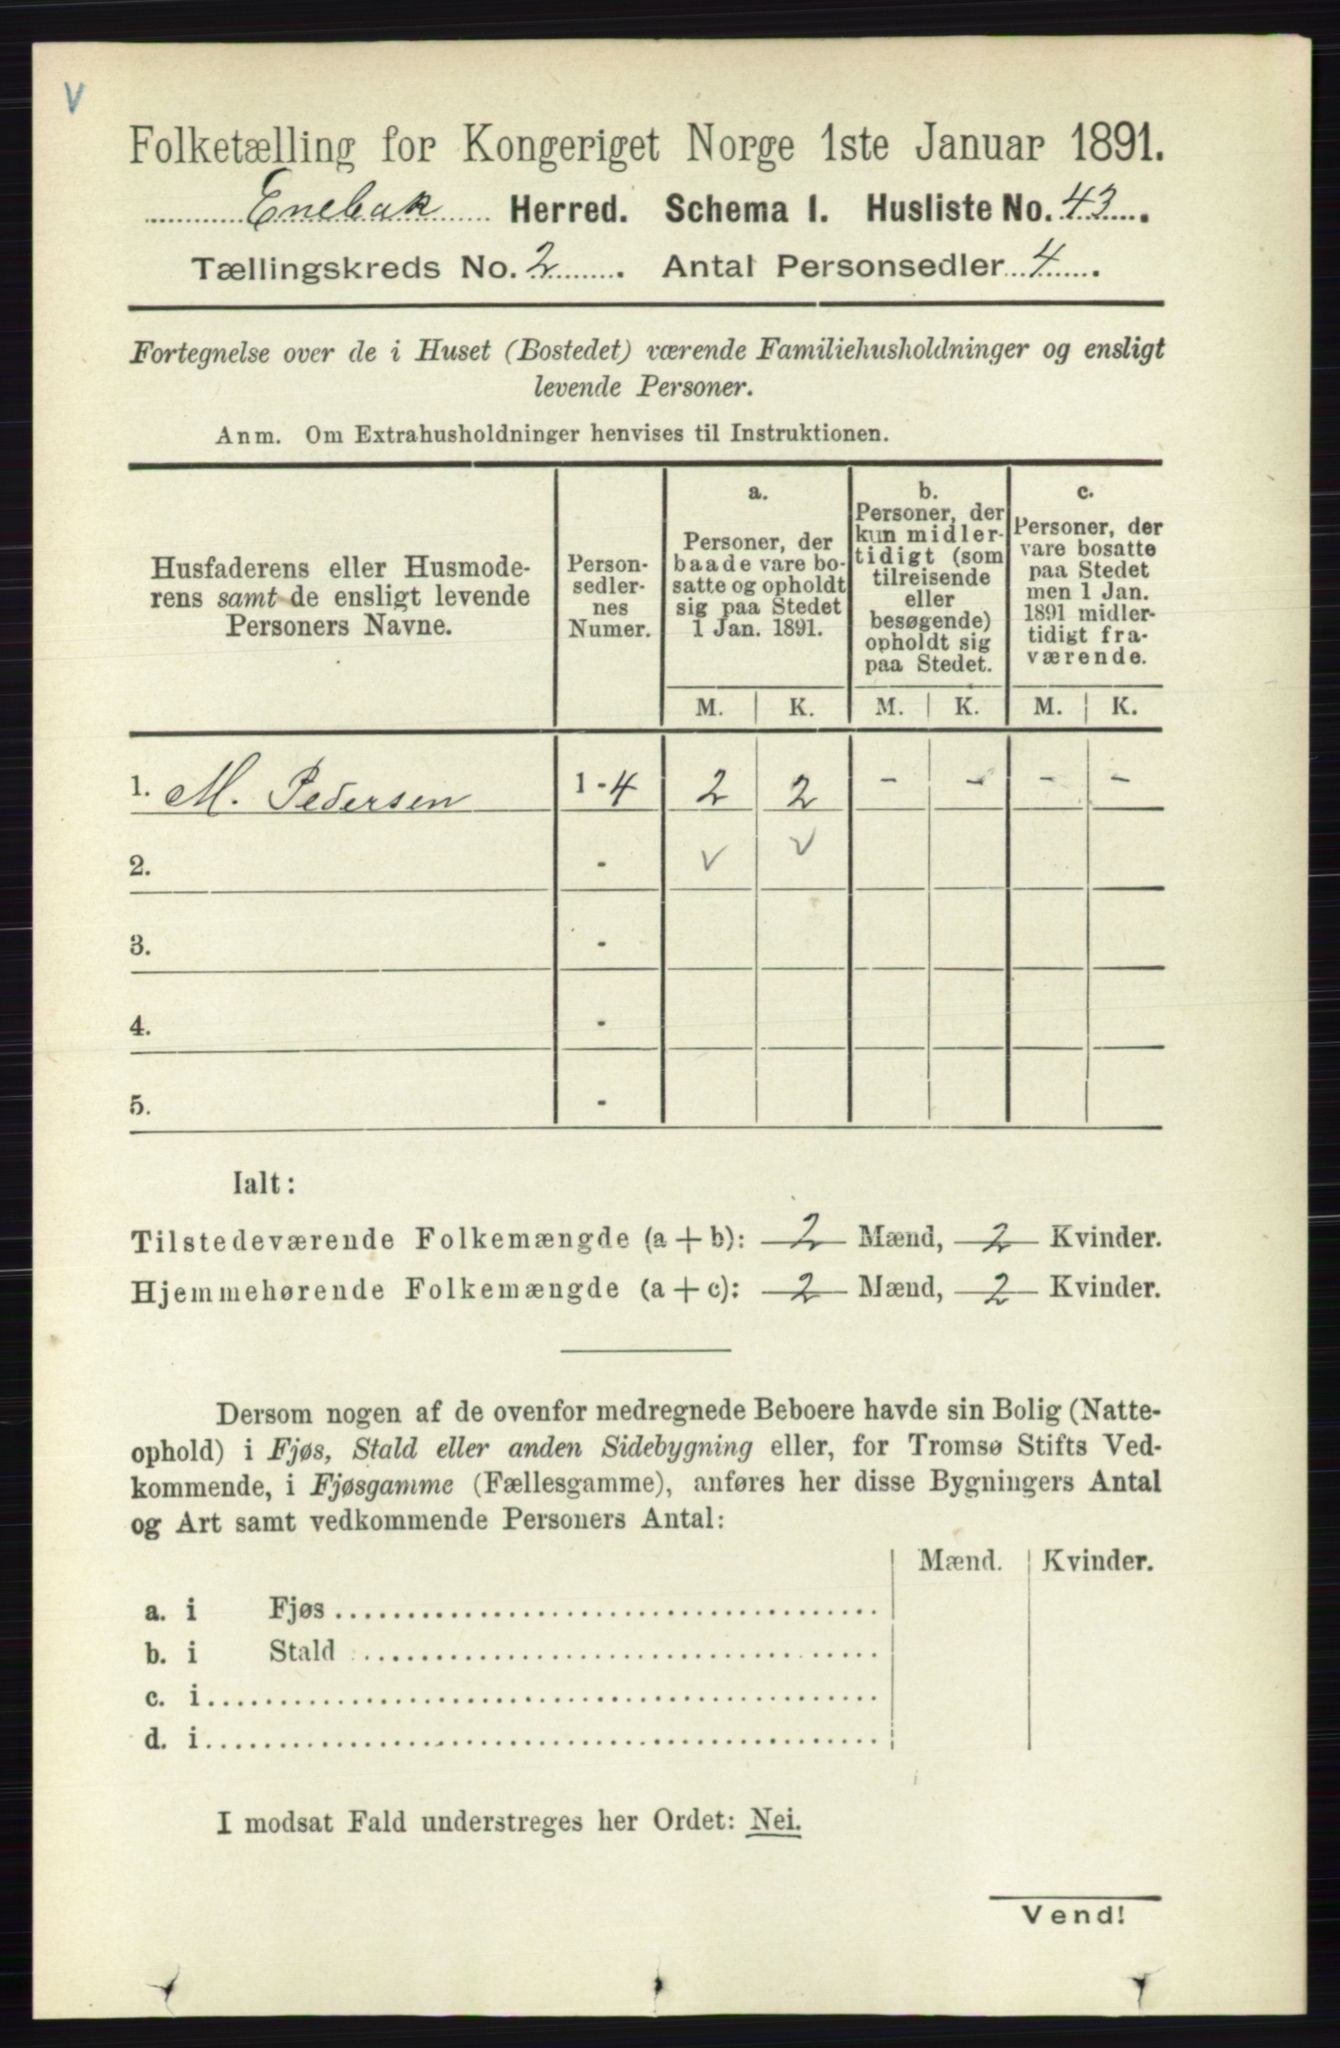 V
Folketælling for Kongeriget Norge 1ste Januar 1891.
Enebak Herred. Schema I. Husliste No. 43.
Tællingskreds No. 2. Antal Personsedler 4.
Fortegnelse over de i Huset (Bostedet) værende Familiehusholdninger og ensligt
levende Personer.
Anm. Om Extrahusholdninger henvises til Instruktionen.
Husfaderens eller Husmode-
rens samt de ensligt levende
Personers Navne.
Person-
sedler-
nes
Numer.
a.
Personer, der
baade vare bo-
satte og opholdt
sig paa Stedet
1 Jan. 1891.
b.
Personer, der
kun midler-
tidigt (som
tilreisende
eller
besøgende)
opholdt sig
paa Stedet.
c.
Personer, der
vare bosatte
paa Stedet
men 1 Jan.
1891 midler-
tidigt fra-
værende.
M. K. M. K. M. K.
1. M. Pedersen 1 - 4 2 2 - - - -
2. - v v
3. -
4. -
5. -
Ialt:
Tilstedeværende Folkemængde (a + b): 2 Mænd, 2 Kvinder.
Hjemmehørende Folkemængde (a + c): 2 Mænd, 2 Kvinder.
Dersom nogen af de ovenfor medregnede Beboere havde sin Bolig (Natte-
ophold) i Fjøs, Stald eller anden Sidebygning eller, for Tromsø Stifts Ved-
kommende, i Fjøsgamme (Fællesgamme), anføres her disse Bygningers Antal
og Art samt vedkommende Personers Antal:
Mænd. Kvinder.
a. i Fjøs
b. i Stald
c. i
d. i
I modsat Fald understreges her Ordet: Nei.
Vend!